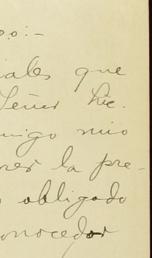 oo:-
iales que
Señor Lic.
migo mio
ner la pre-
obligado
onocedor